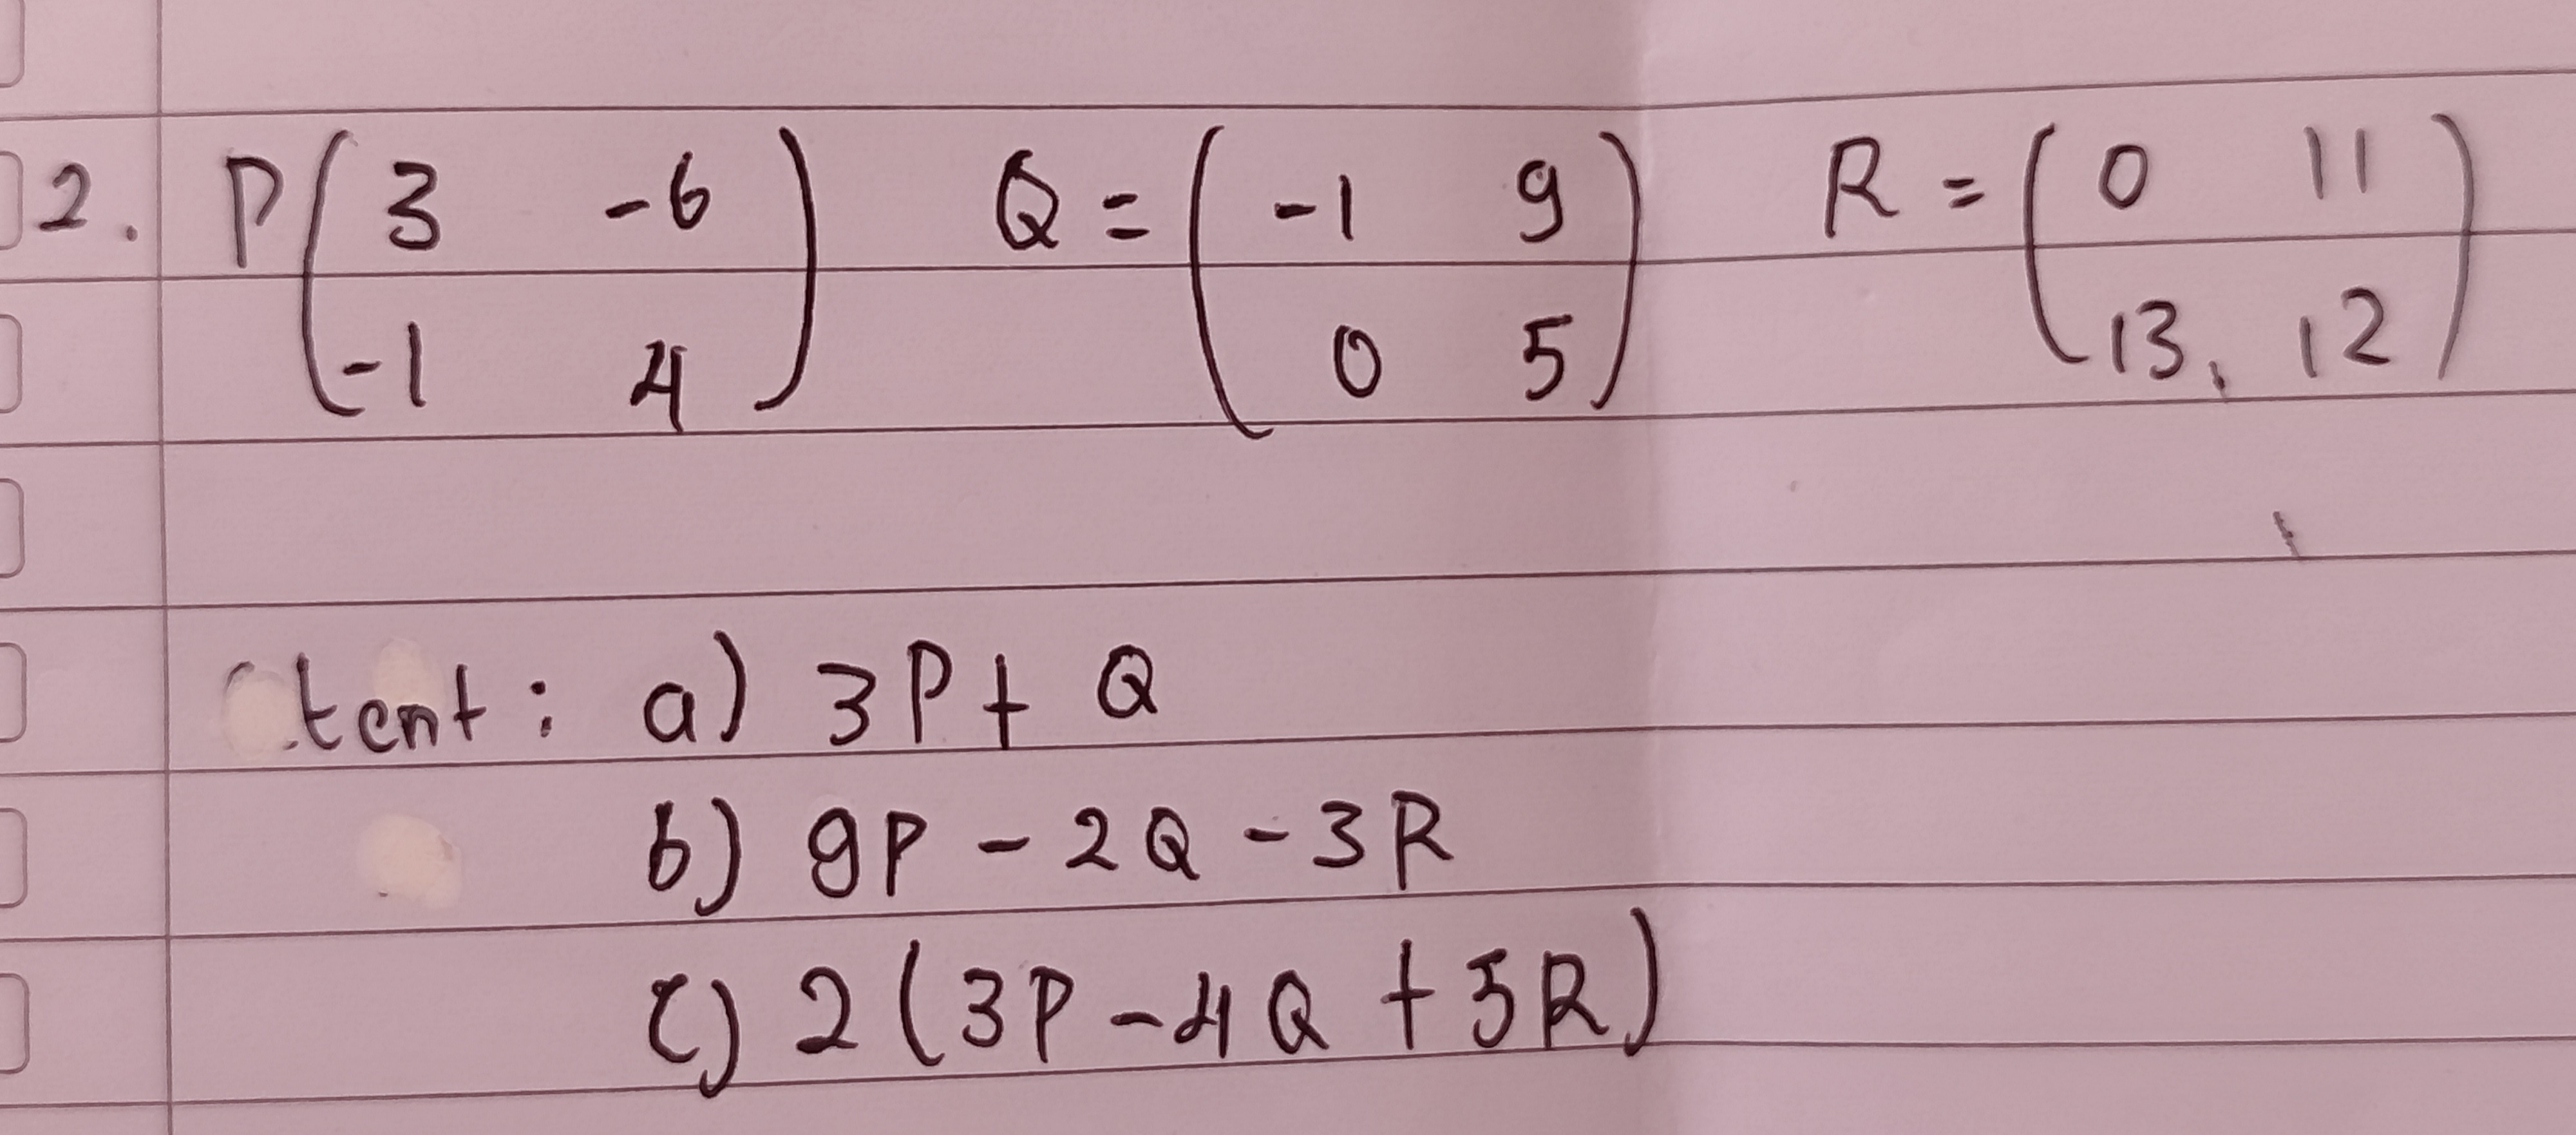 2. P ( 3 -6 ) Q = ( -1 9 ) R = ( 0 11 )
( -1 4 ) ( 0 5 ) ( 13, 12 )
tent : a) 3P + Q
b) 9P - 2Q - 3R
c) 2 ( 3P - 4Q + 5R )